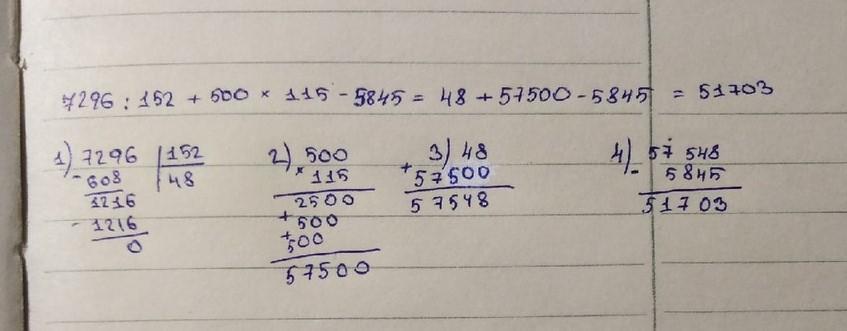 7296 : 152 + 500 × 115 - 5845 = 48 + 57500 - 5845 = 51703
1) 7296 | 152 2) 500 3) 48 4) 57 548
- 608 | 48 × 115 + 57500 - 5845
1216 2500 57548 51703
- 1216 + 500
0 + 500
57500